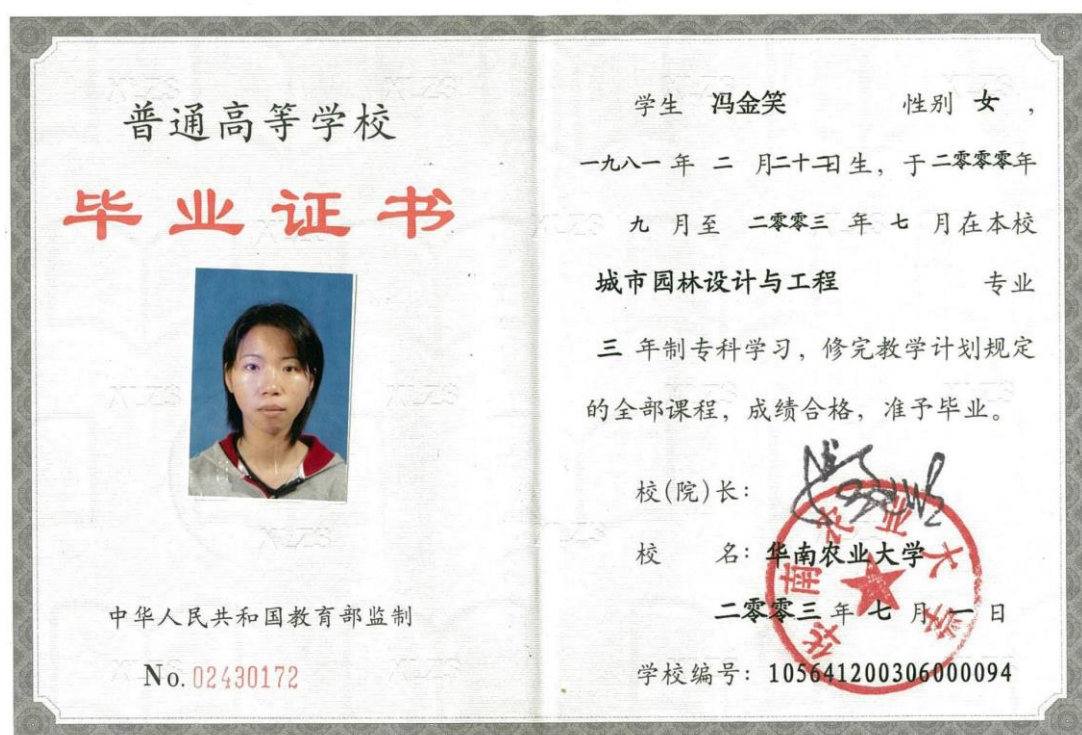 普通高等学校
毕业证书
中华人民共和国教育部监制
No. 02430172
学生 冯金笑 性别 女,
一九八一年 二 月二十二日生, 于二零零零年
九 月至 二零零三 年 七 月在本校
城市园林设计与工程 专业
三 年制专科学习, 修完教学计划规定
的全部课程, 成绩合格, 准予毕业。
校(院)长:
校 名: 华南农业大学
二零零三 年 七 月 一 日
学校编号: 105641200306000094
华南农业大学